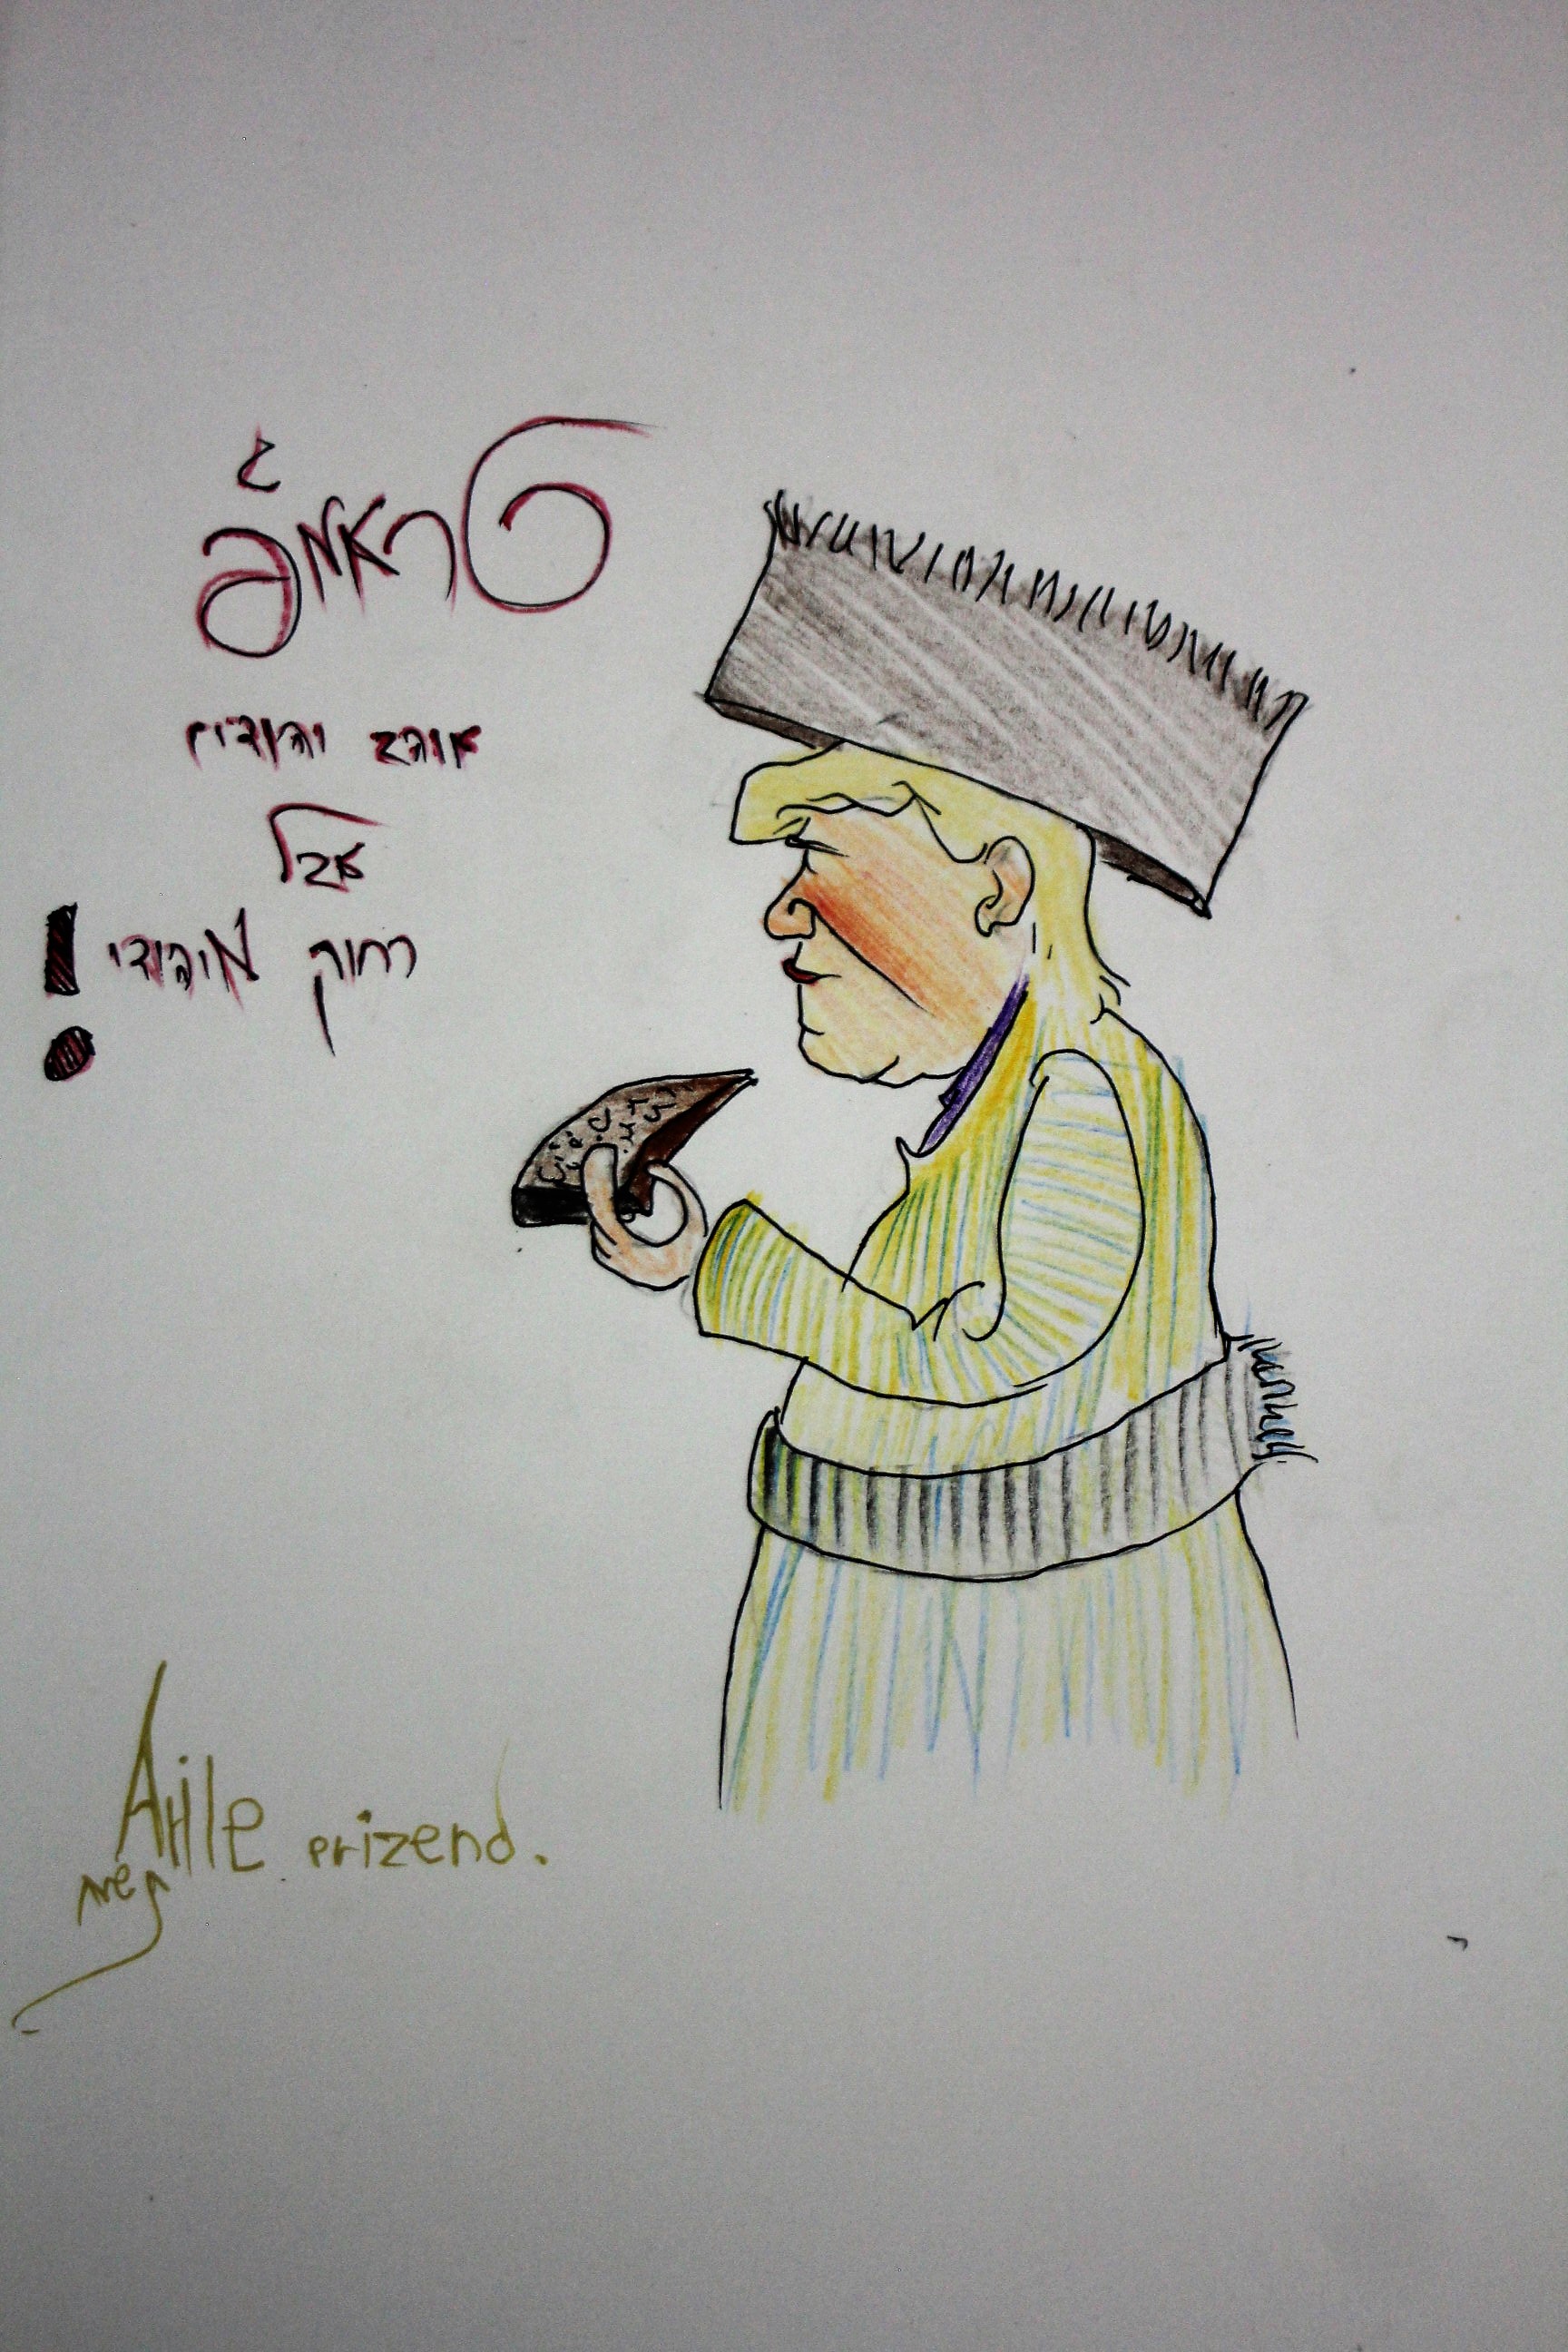 טראמפ
אוהב יהודים
אבל
רחוק מיהודי!
Aille prizend.